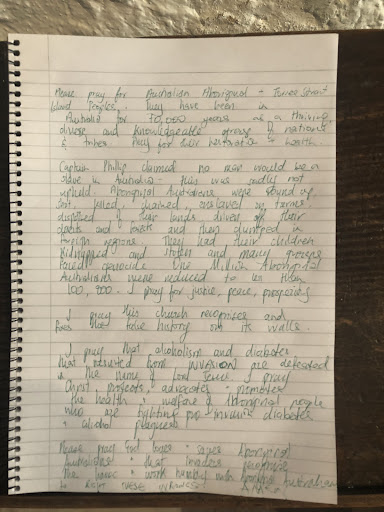 Please pray for Australian Aboriginal + Torres Strait
Island Peoples. They have been in
Australia for 70,000 years as a thriving,
diverse and knowledgeable group of nations
& tribes. Pray for their restoration to health.
Captain Phillip claimed no man would be a
slave in Australia - this was sadly not
upheld. Aboriginal Australians were round up,
shot, killed, chained, enslaved on farms,
dispersed of their lands driven off their
and forests and then dumped in
foreign regions. They had their children
kidnapped and stolen and many groups
faced genocide. One Million Aboriginal
Australians were reduced to less than
100,000. I pray for justice, peace, prosperity
I pray this church recognises and
that true history on its walls.
I pray that alcoholism and diabetes
that resulted from INVASION are defeated
in the name of Lord Jesus. I pray
Christ, protects, advocates + promotes
the health + welfare of Aboriginal people
who are fighting post invasion diabetes
+ alcohol plagues
Please pray that
Australians + that leaders
the + work with Aboriginal Australians
to RIGHT THESE WRONGS.